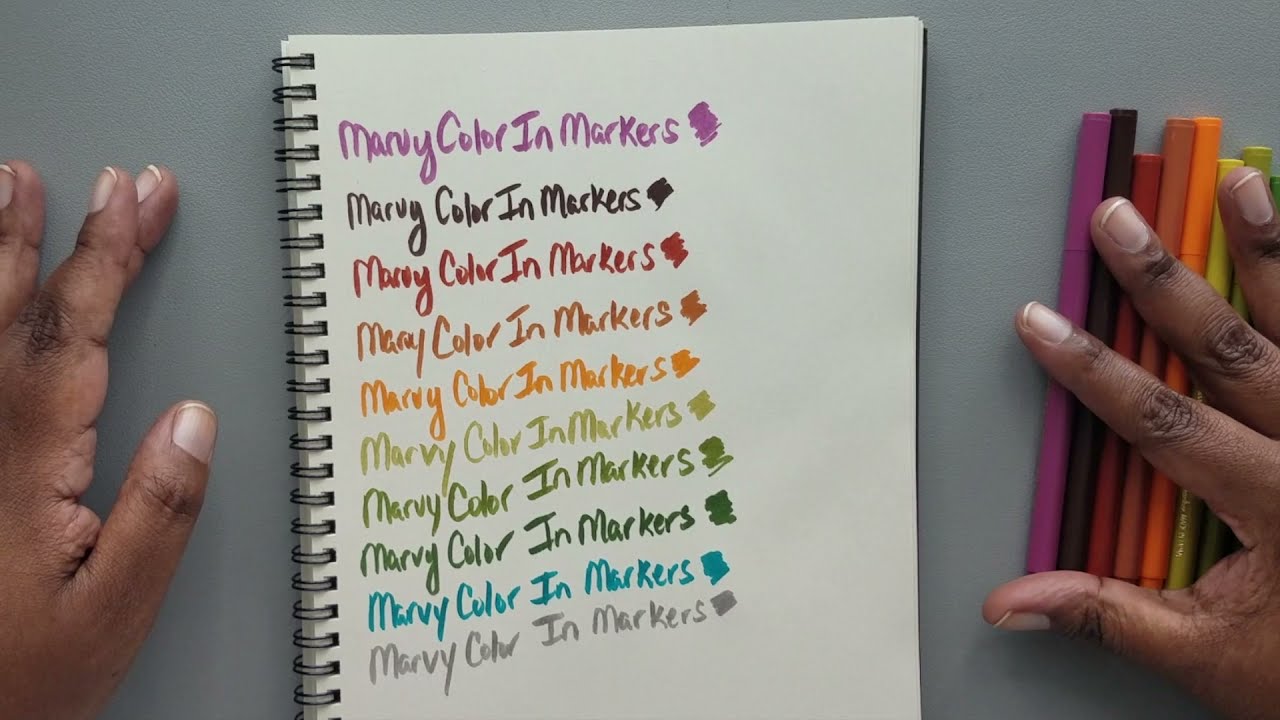 Marvy Color In Markers
Marvy Color In Markers
Marvy Color In Markers
Marvy Color In Markers
Marvy Color In Markers
Marvy Color In Markers
Marvy Color In Markers
Marvy Color In Markers
Marvy Color In Markers
Marvy Color In Markers